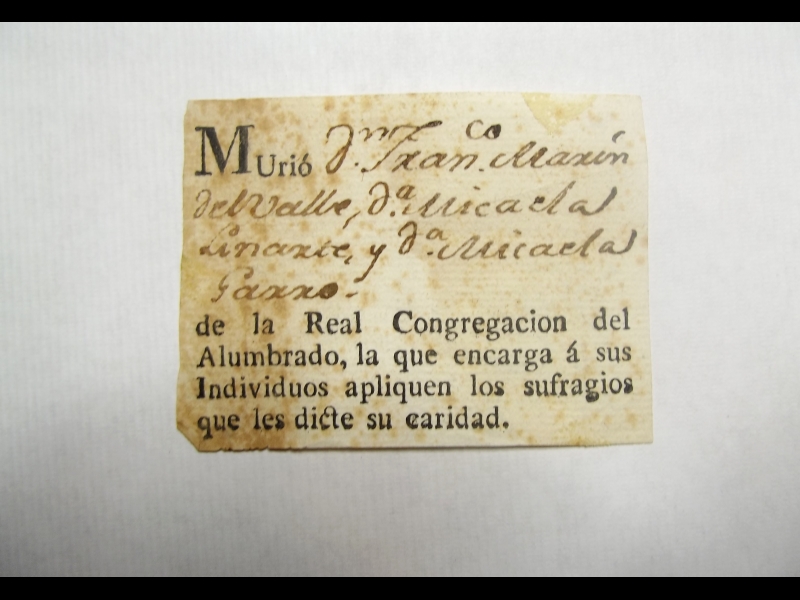 MUrió dn. Franco. Marín
del Valle, da. Micaela
Liriarte, y da. Micaela
Garro.
de la Real Congregacion del
Alumbrado, la que encarga á sus
Individuos apliquen los sufragios
que les dicte su caridad.